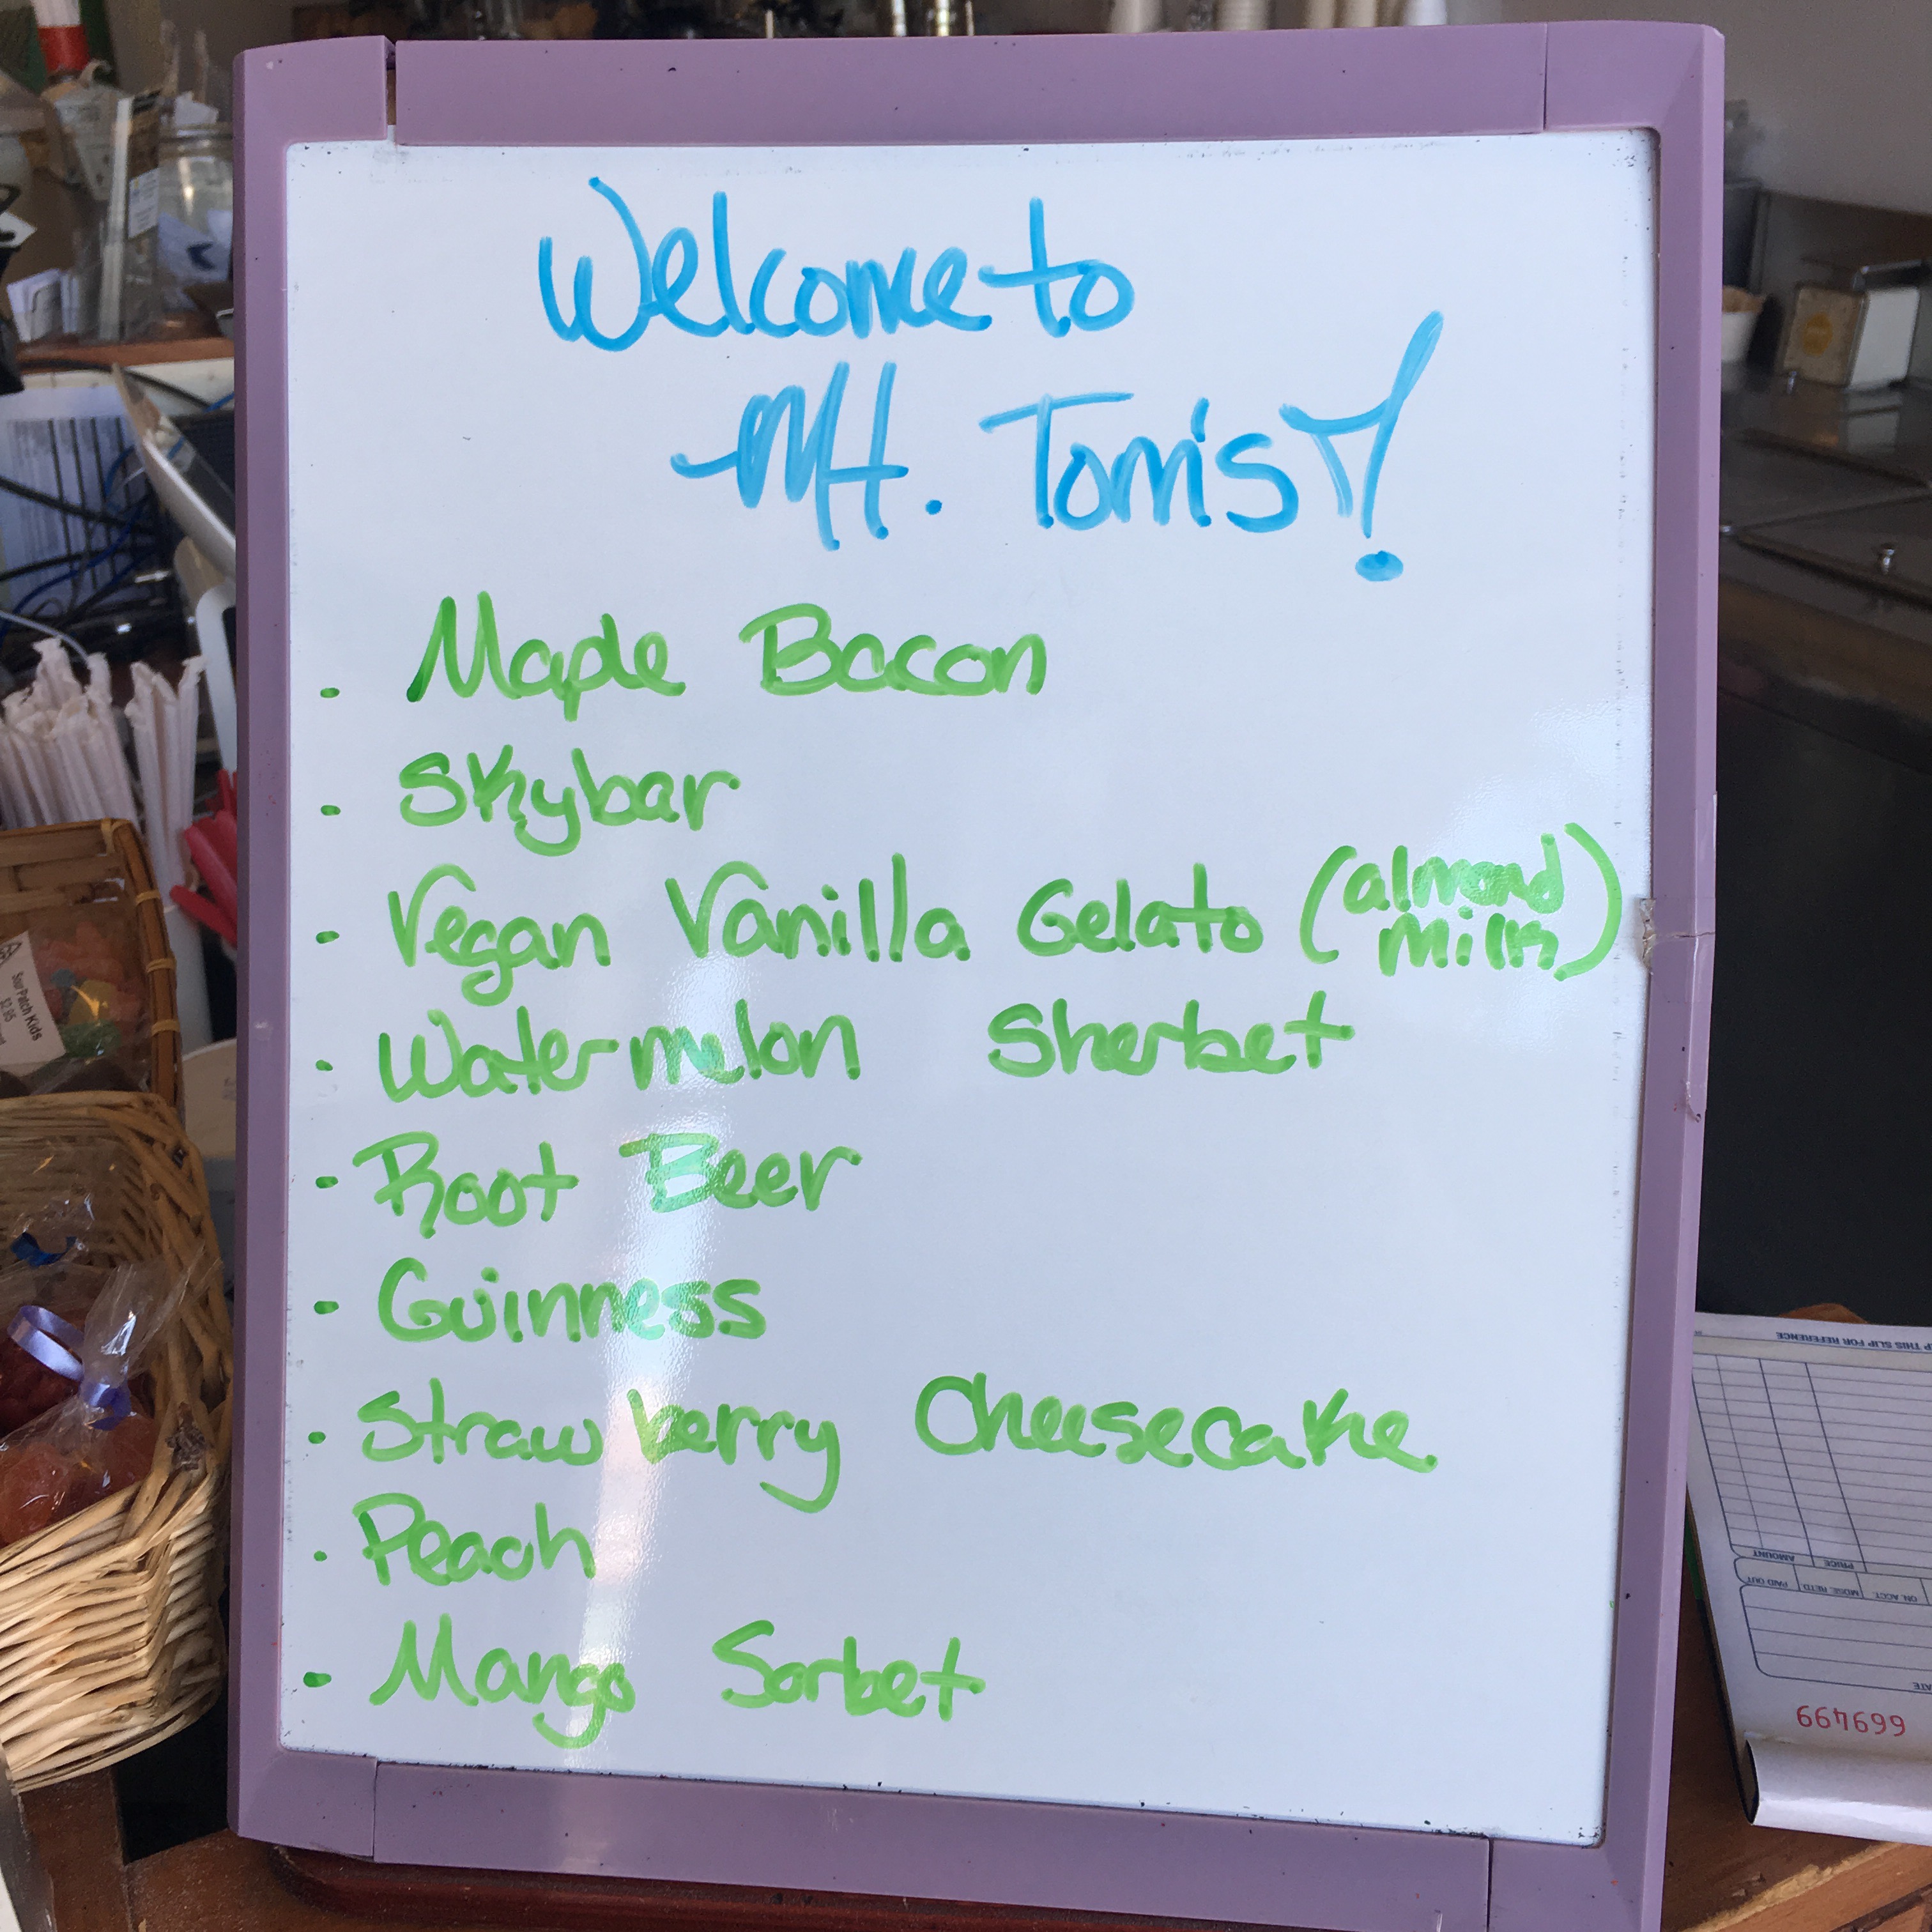 Welcome to
Mt. Tom's!
· Maple Bacon
· Skybar
· Vegan Vanilla Gelato (almond milk)
· Watermelon Sherbet
· Root Beer
· Guinness
· Strawberry Cheesecake
· Peach
· Mango Sorbet
Sour Patch Kids
$2.95
P THIS SLIP FOR REFERENCE
AMOUNT
PRICE
PAID OUT
MDSE. RETD.
ON. ACCT.
ATE
669499